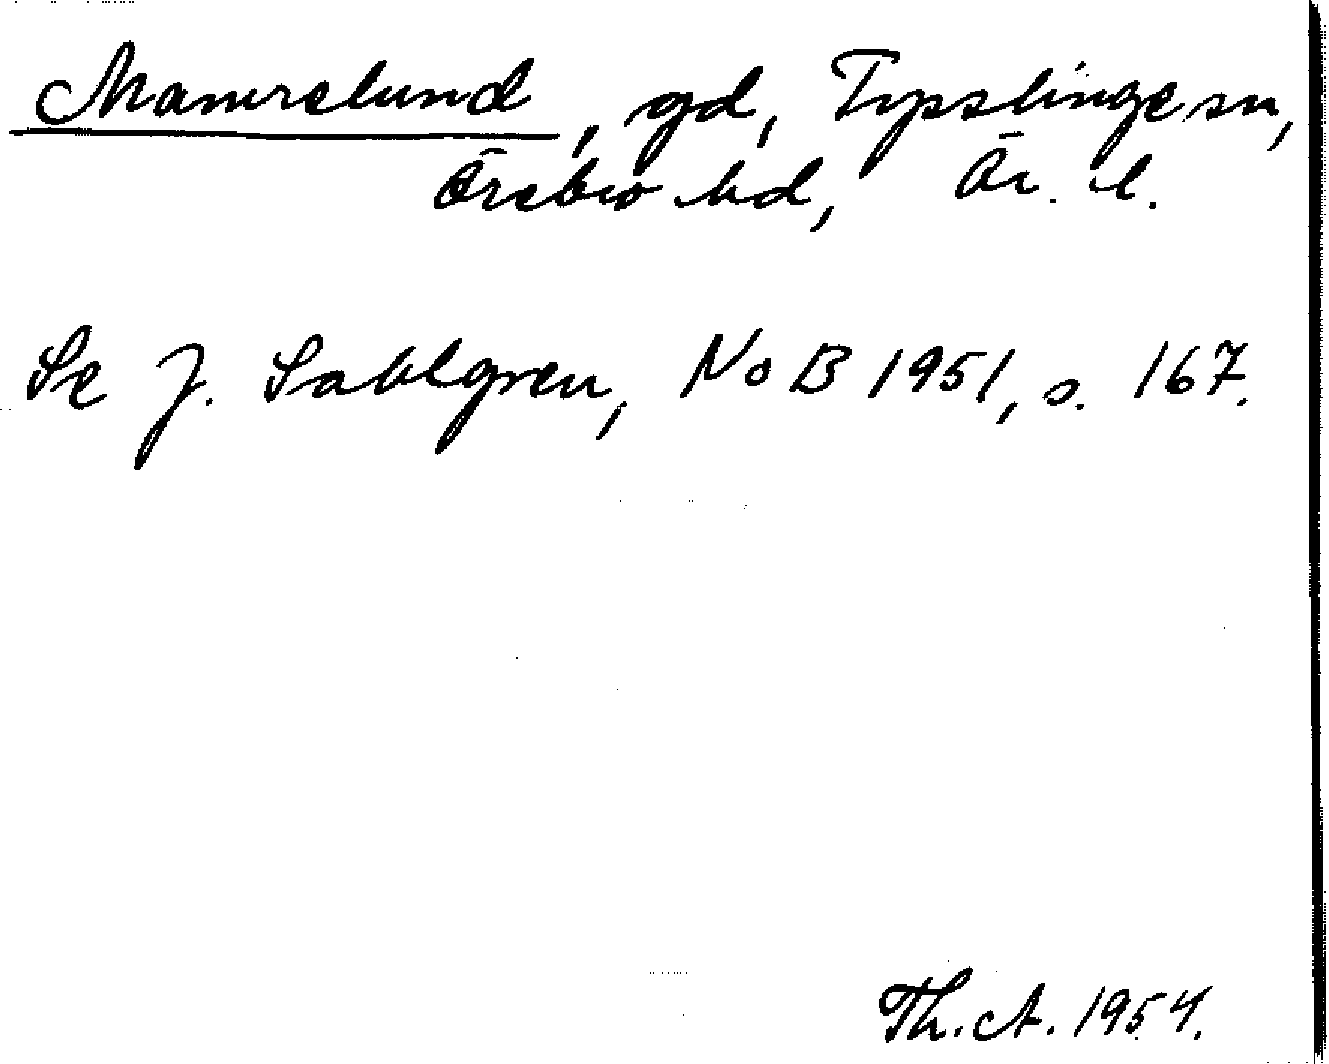 Mamrelund, gd, Tysslinge sn,
Örebro hd, Ör. l.
Se J. Sahlgren, NoB 1951, s. 167.
Th. A. 1954.